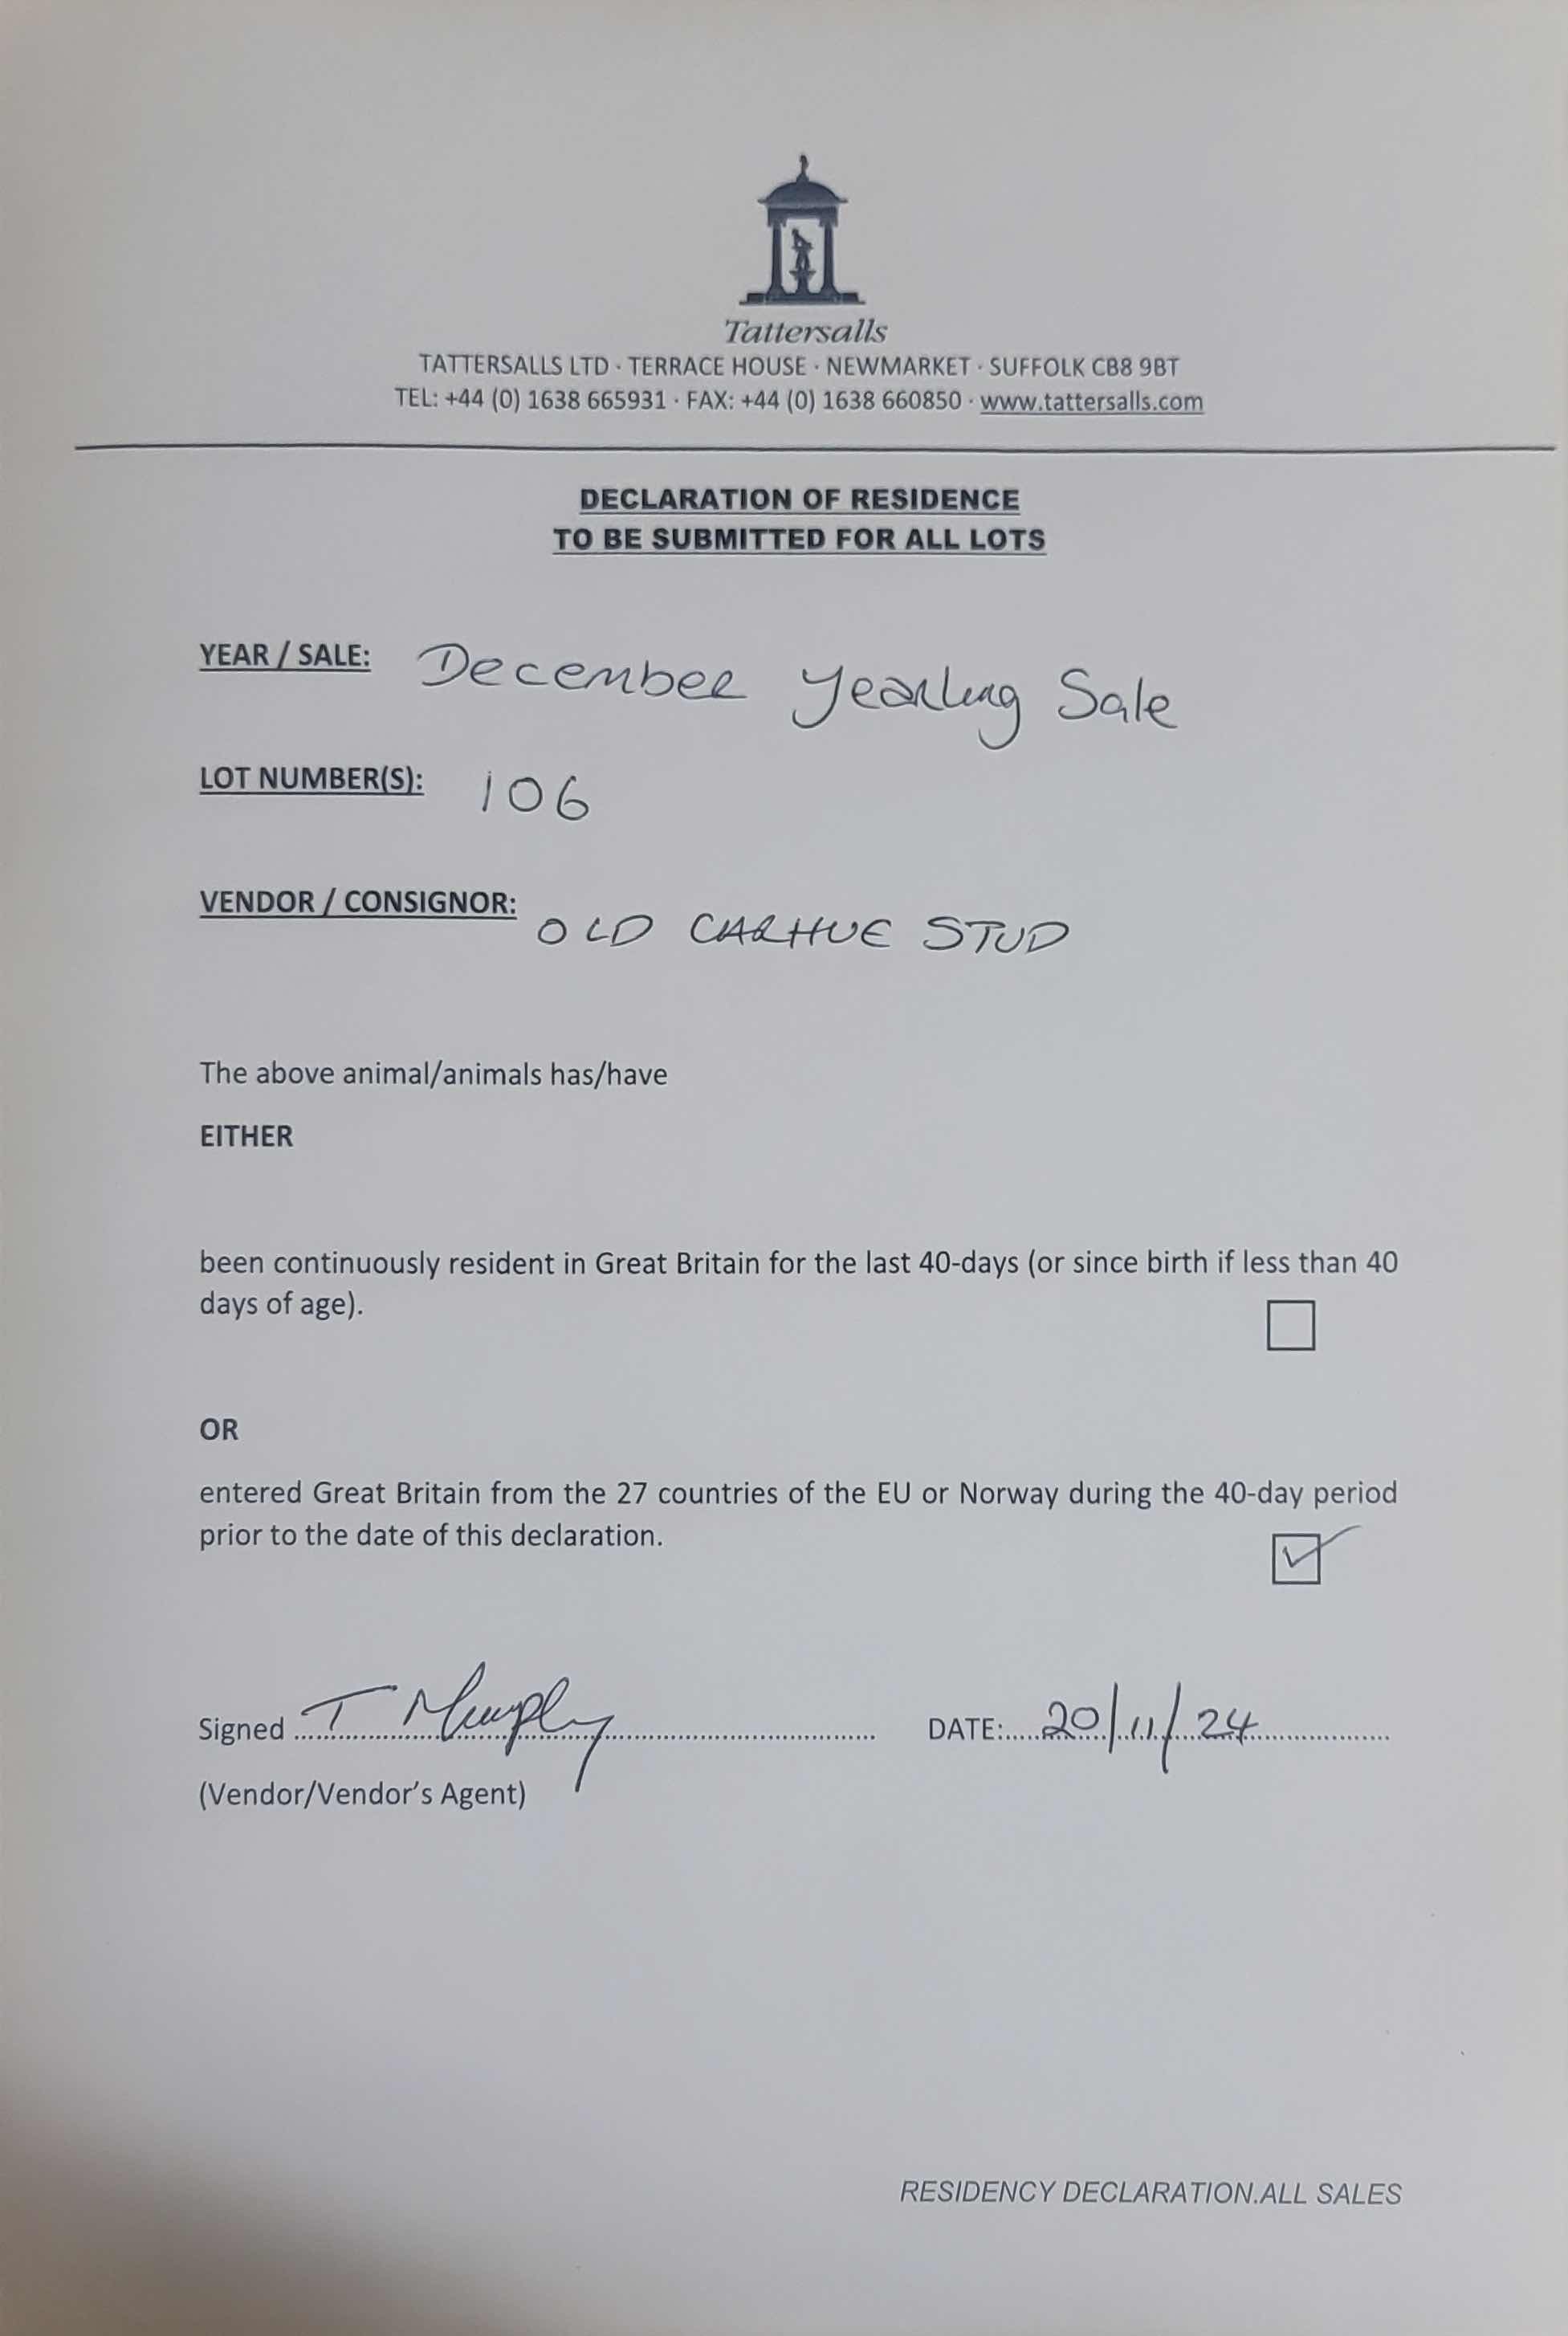 Tattersalls
TATTERSALLS LTD · TERRACE HOUSE · NEWMARKET · SUFFOLK CB8 9BT
TEL: +44 (0) 1638 665931 · FAX: +44 (0) 1638 660850 · www.tattersalls.com
DECLARATION OF RESIDENCE
TO BE SUBMITTED FOR ALL LOTS
YEAR / SALE: December Yearling Sale
LOT NUMBER(S): 106
VENDOR / CONSIGNOR: OLD CARHUE STUD
The above animal/animals has/have
EITHER
been continuously resident in Great Britain for the last 40-days (or since birth if less than 40
days of age).
OR
entered Great Britain from the 27 countries of the EU or Norway during the 40-day period
prior to the date of this declaration.
Signed T Murphy DATE: 20/11/24
(Vendor/Vendor's Agent)
RESIDENCY DECLARATION.ALL SALES